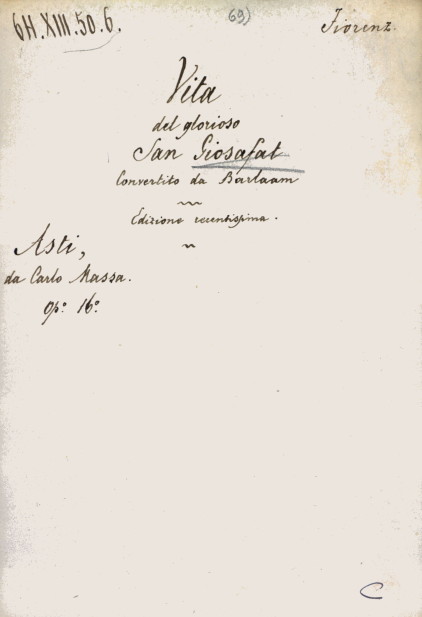 6H.XIII.50.6.
69)
Fiorenz.
Vita
del glorioso
San Giosafat
Convertito da Barlaam
Edizione recentissima.
Asti,
da Carlo Massa.
op: 16º
C